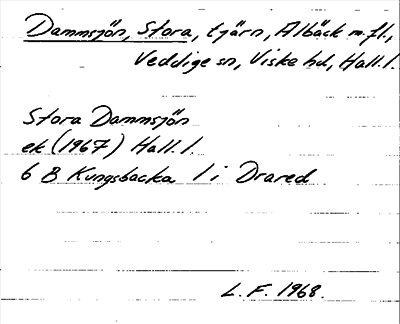 Dammsjön, Stora, tjärn, Albäck m.fl.,
Veddige sn, Viske hd, Hall. l.
Stora Dammsjön
ek (1967) Hall. l.
6 B Kungsbacka 1 i Drared
L. F. 1968.